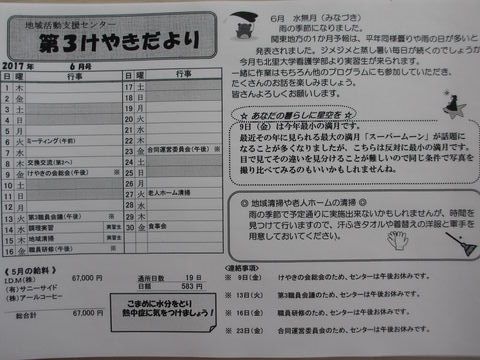 地域活動支援センター
第３けやきだより
2017 年　6 月号
行事　行事
1 木
2 金
3 土
4 日
5 月
6 火 ミーティング(午前)
7 水
8 木 交換交流(第2へ)
9 金 けやきの会総会(午後) ※
10 土
11 日
12 月
13 火 第3職員会議(午後) ※
14 水 調理実習 実習生
15 木 地域清掃 実習生
16 金 職員研修(午後) ※
17 土
18 日
19 月
20 火
21 水
22 木
23 金 合同運営委員会(午後) ※
24 土
25 日
26 月
27 火 老人ホーム清掃
28 水
29 木
30 金 食事会
《 5月の給料 》
I.D.M(株) 67,000 円
(有)サニーサイド
(株)アールコーヒー
総合計 67,000 円
通所日数 19 日
日額 583 円
こまめに水分をとり
熱中症に気をつけましょう！
6月　水無月(みなづき)
雨の季節になりました。
関東地方の1か月予報は、平年同様曇りや雨の日が多いと
発表されました。ジメジメと蒸し暑い毎日が続くのでしょうか
今月も北里大学看護学部より実習生が来られます。
一緒に作業はもちろん他のプログラムにも参加していただき、
たくさんのお話を楽しみましょう。
皆さんよろしくお願いします。
☆ あなたの暮らしに星空を ☆
9日(金)は今年最小の満月です。
最近その年に見られる最大の満月「スーパームーン」が話題に
なることが多くなりましたが、こちらは反対に最小の満月です。
目で見てその違いを見分けることが難しいので同じ条件で写真を
撮り比べてみるのもいいかもしれませんね。
◎ 地域清掃や老人ホームの清掃 ◎
雨の季節で予定通りに実施出来ないかもしれませんが、時間を
見つけて行いますので、汗ふきタオルや着替えの洋服と軍手を
用意しておいてください。
<連絡事項>
※ 9日(金) けやきの会総会のため、センターは午後お休みです。
※ 13日(火) 第3職員会議のため、センターは午後お休みです。
※ 16日(金) 職員研修のため、センターは午後お休みです。
※ 23日(金) 合同運営委員会のため、センターは午後お休みです。